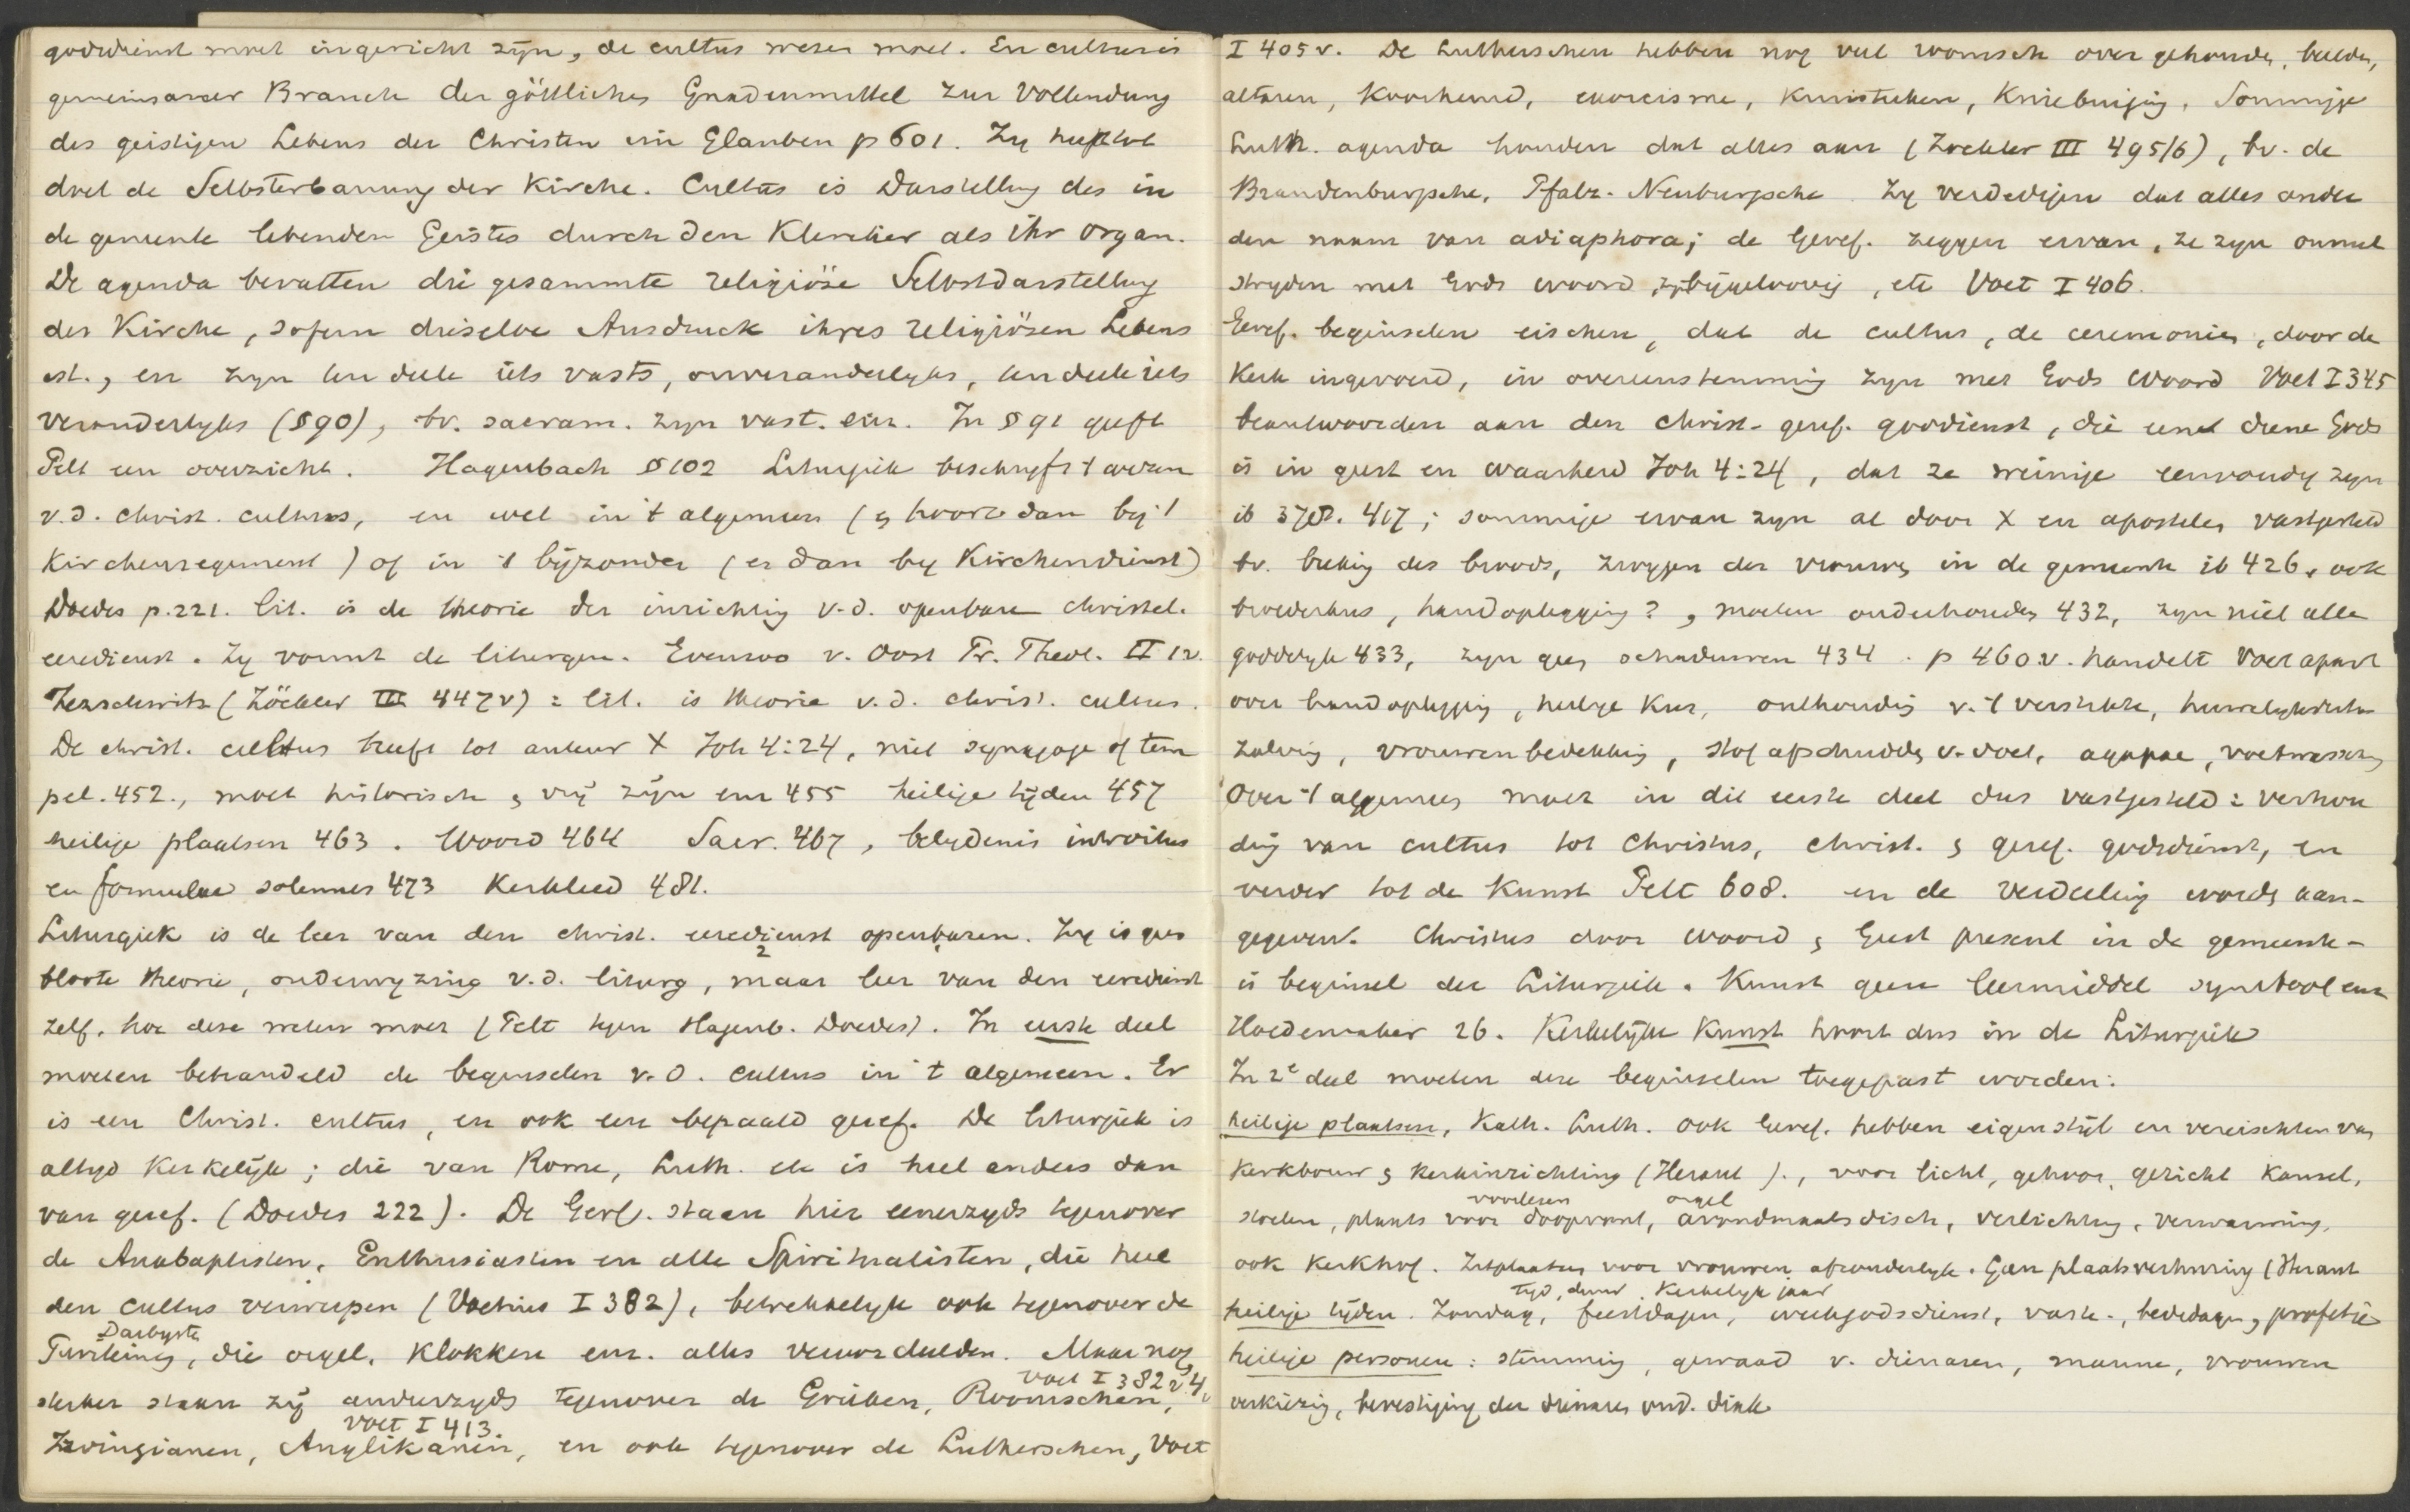 godsdienst moet ingericht zijn, de cultus wezen moet. En cultus is
gemeinsamer Brauch der göttlichen Gnadenmittel zur Vollendung
des geistigen Lebens der Christen im Glauben p 601. Zy heeft tot
doel de Selbsterbauung der Kirche. Cultus is Darstellung des in
de gemeente lebenden Geistes durch den Kleriker als ihr organ.
De agenda bevatten die gesammte religiöse Selbstdarstellung
der Kirche, sofern dieselbe Ausdruck ihres religiösen Lebens
ist., en zyn ten deele iets vasts, onveranderlyks, ten deele iets
veranderlyks (§ 90), bv. sacram. zyn vast. enz. In § 91 geeft
Pelt een overzicht. Hagenbach § 102 Liturgiek beschryft 't wezen
v.d. christ. cultus, en wel in 't algemeen (& hoort dan bij 't
Kirchenregiment) of in 't bijzonder (en dan by Kirchendienst)
Doedes p. 221. lit. is de theorie der inrichting v.d. openbare christel.
eeredienst. Zy vormt de liturgen. Evenzoo v. Oost Pr. Theol. II 12.
Zezschwitz (Zöckler III 447 v) = lit. is theorie v.d. christ. cultus.
De christ. cultus heeft tot auteur X Joh 4:24, niet synagoge of tem
pel. 452., moet historisch & vrij zijn enz 455 heilige tijden 457
heilige plaatsen 463. Woord 464 Sacr. 467, belydenis introitus
en formulae solennes 473 Kerklied 481.
Liturgiek is de leer van den christ. eeredienst openbaren. Zy is geen
bloote theorie, onderwyzing v.d. liturg, maar leer van den eeredienst
zelf. hoe deze wezen moet (Pelt tegen Hagenb. Doedes). In eerste deel
moeten behandeld de beginselen v.d. cultus in 't algemeen. Er
is een Christ. cultus, en ook een bepaald geref. De liturgiek is
altyd Kerkelijk; die van Rome, Luth. etc is heel anders dan
van geref. (Doedes 222). De Geref. staan hier eenerzyds tegenover
de Anabaptisten, Enthusiasten en alle Spiritualisten, die heel
den cultus verwerpen (Voetius I 382), betrekkelyk ook tegenover de
Darbysten
Puriteinen, die orgel, klokken enz. alles veroordeelden. Maar nog
sterker staan zij anderzyds tegenover de Grieken, Roomschen, Voet I 382 v. 4
Voet I 413.
Zwinglianen, Anglikanen, en ook tegenover de Lutherschen, Voet
I 405 v. De Lutherschen hebben nog veel roomsch over gehouden, beelden,
altaren, Koorhemd, exorcisme, Kruisteeken, Kniebuiging. Sommige
Luth. agenda houden dat alles aan (Zöckler III 495/6), bv. de
Brandenburgsche, Pfalz-Neuburgsche. Zy verdedigen dat alles onder
den naam van adiaphora; de Geref. zeggen ervan, ze zyn onnut
stryden met Gods woord, zyn bijgeloovig, etc Voet I 406.
Geref. beginselen eischen, dat de cultus, de ceremonien, door de
Kerk ingevoerd, in overeenstemming zyn met Gods Woord Voet I 345
beantwoorden aan den christ-geref. godsdienst, die een dienen Gods
is in geest en waarheid Joh 4:24, dat ze weinige eenvoudig zyn
ib 378. 417; sommige ervan zyn al door X en apostelen vastgesteld
bv. breking des broods, zwygen der vrouwen in de gemeente ib 426, ook
broederkus, handoplegging?, moeten onderhouden 432, zyn niet alle
goddelyk 433, zyn geen schaduwen 434. p 460 v. handelt Voet apart
over handoplegging, heilige Kus, onthouding v. 't verstikte, huwelyksdichten
zalving, vrouwenbedekking, stof afschudden v. voet, agapae, voetwassching
Over 't algemeen moet in dit eerste deel dus vastgesteld: verhou
ding van cultus tot Christus, christ. & geref. godsdienst, en
verder tot de Kunst Pelt 608. en de verdeeling wordt aan-
gegeven. Christus door woord & Geest present in de gemeente -
is beginsel der Liturgiek. Kunst geen leermiddel symbool enz
Hoedemaker 26. Kerkelijke Kunst hoort dus in de Liturgiek
In 2e deel moeten deze beginselen toegepast worden:
heilige plaatsen, Kath. Luth. ook Geref. hebben eigen stijl en vereischten van
Kerkbouw & kerkinrichting (Heraut )., voor licht, gehoor, gezicht kansel,
voorlezen orgel
stoelen, plaats voor doopvont, avondmaalsdisch, verlichting, verwarming.
ook Kerkhof. Zitplaatsen voor vrouwen afzonderlyk. Geen plaatsverhuring (Heraut
tijd, duur. Kerkelyk jaar
heilige tijden. Zondag, feestdagen, weekgodsdienst, vaste-, bededagen, profetie
heilige personen: stemming, gewaad v. dienaren, mannen, vrouwen
verkiezing, bevestiging der dienaren